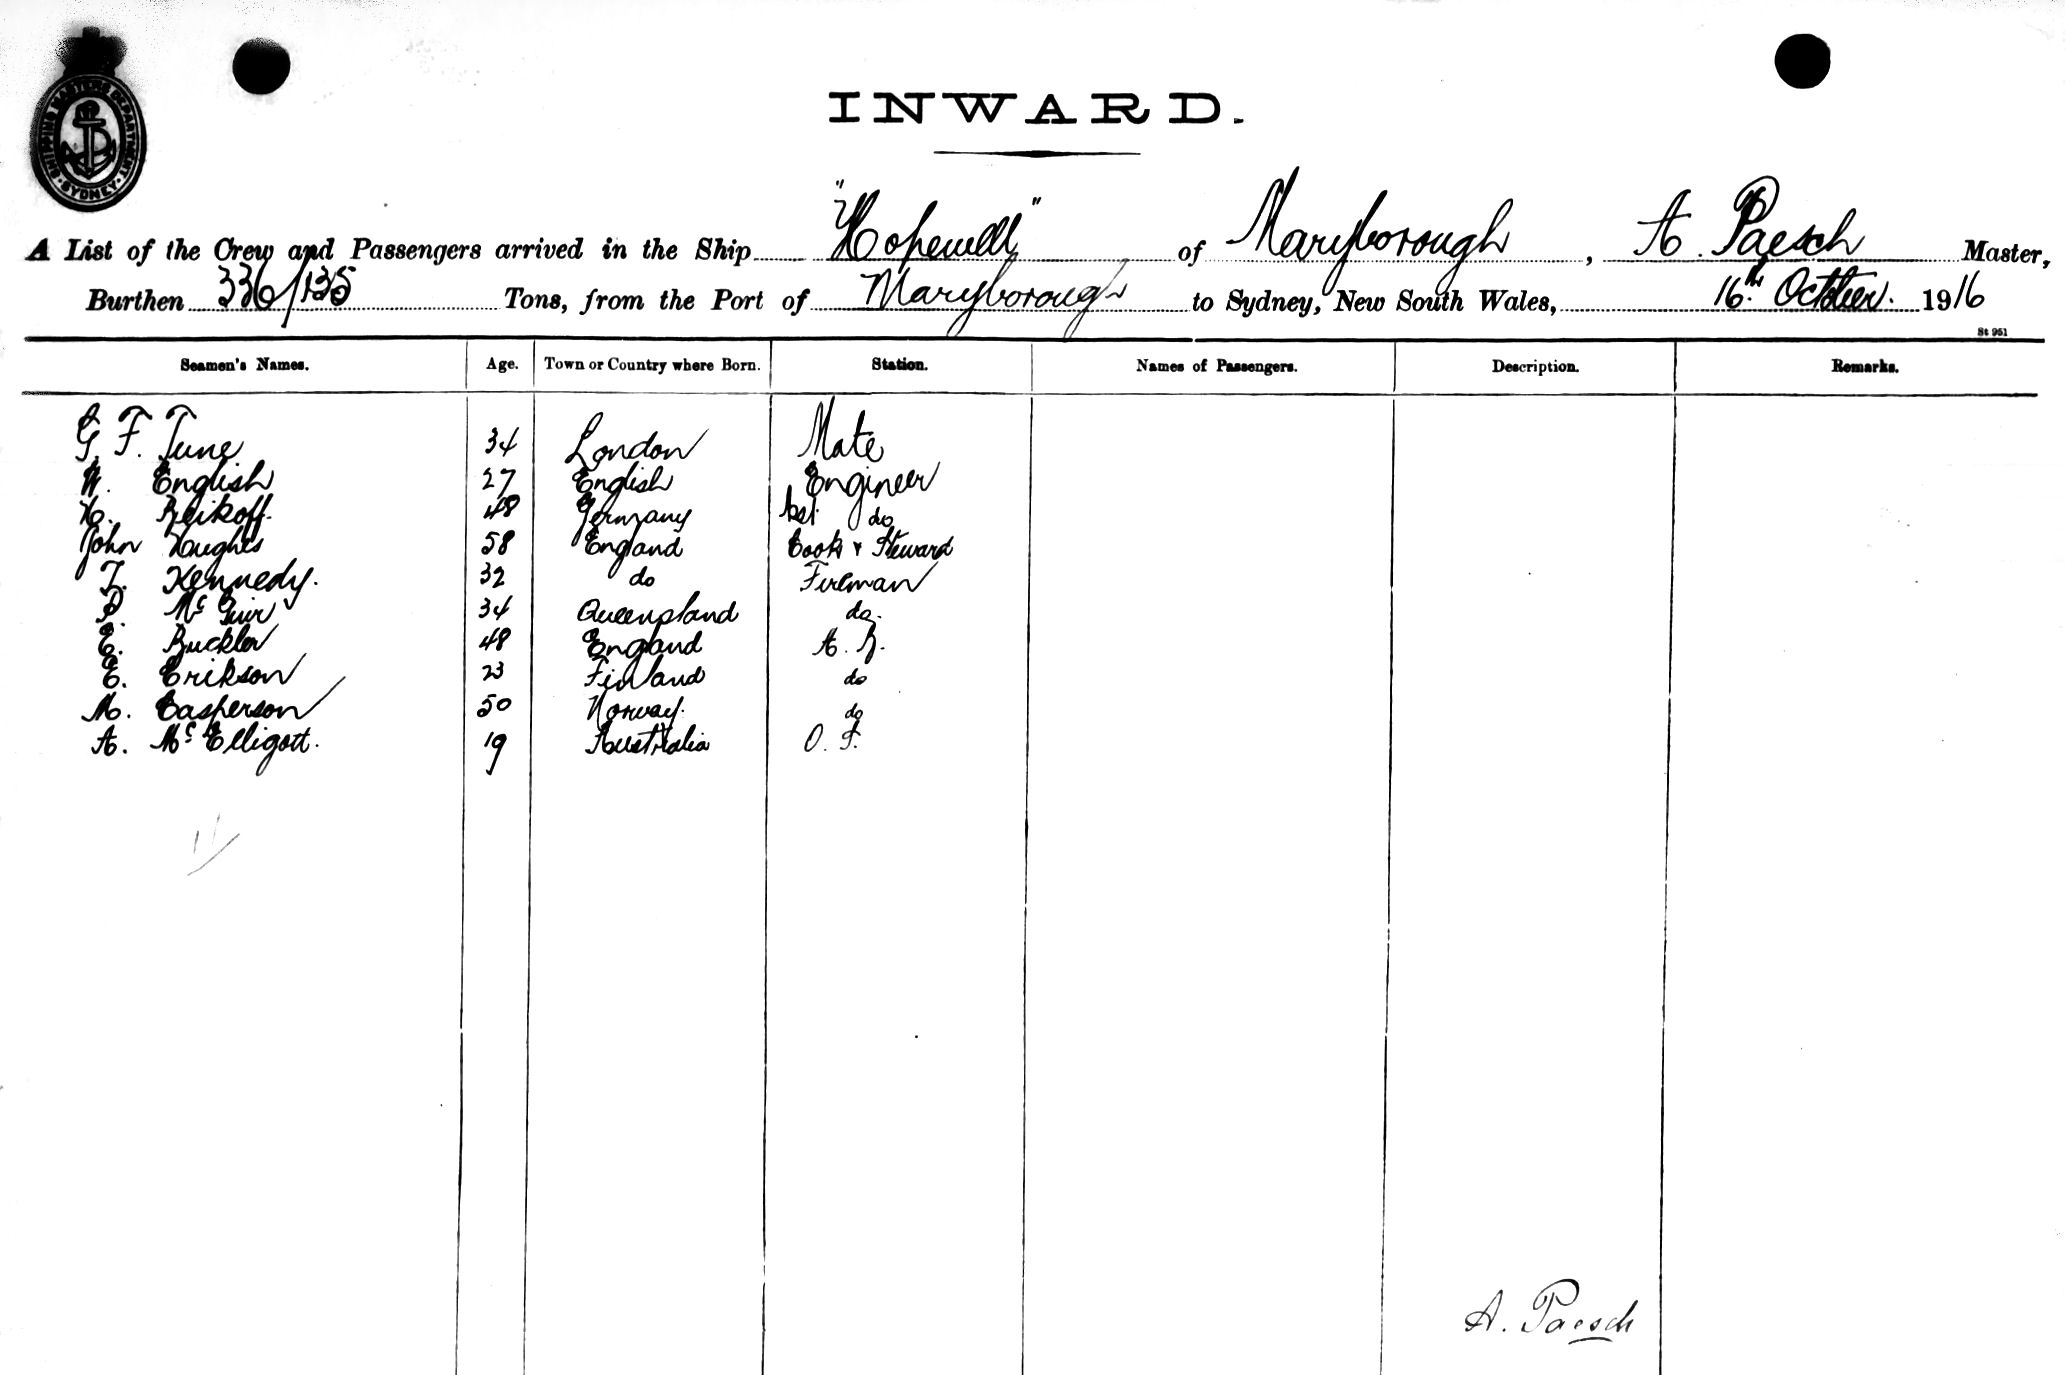 SHIPPING MASTERS DEPARTMENT
SYDNEY
INWARD.
A List of the Crew and Passengers arrived in the Ship "Hopewell" of Maryborough, A. Paesch Master,
Burthen 336/135 Tons, from the Port of Maryborough to Sydney, New South Wales, 16th October. 1916
St 951
Seamen's Names. Age. Town or Country where Born. Station. Names of Passengers. Description. Remarks.
G. F. Tune 34 London Mate
W. English 27 English Engineer
H. 48 Germany Asst. do
John Hughes 58 England Cook & Steward
T. Kennedy. 32 do Fireman
McGuir 34 Queensland do.
E. Buckler 48 England A. B.
E. Erikson 23 Finland do
M. Casperson 50 Norway. do
A. McElligott. 19 Australia O.
11
A. Paesch